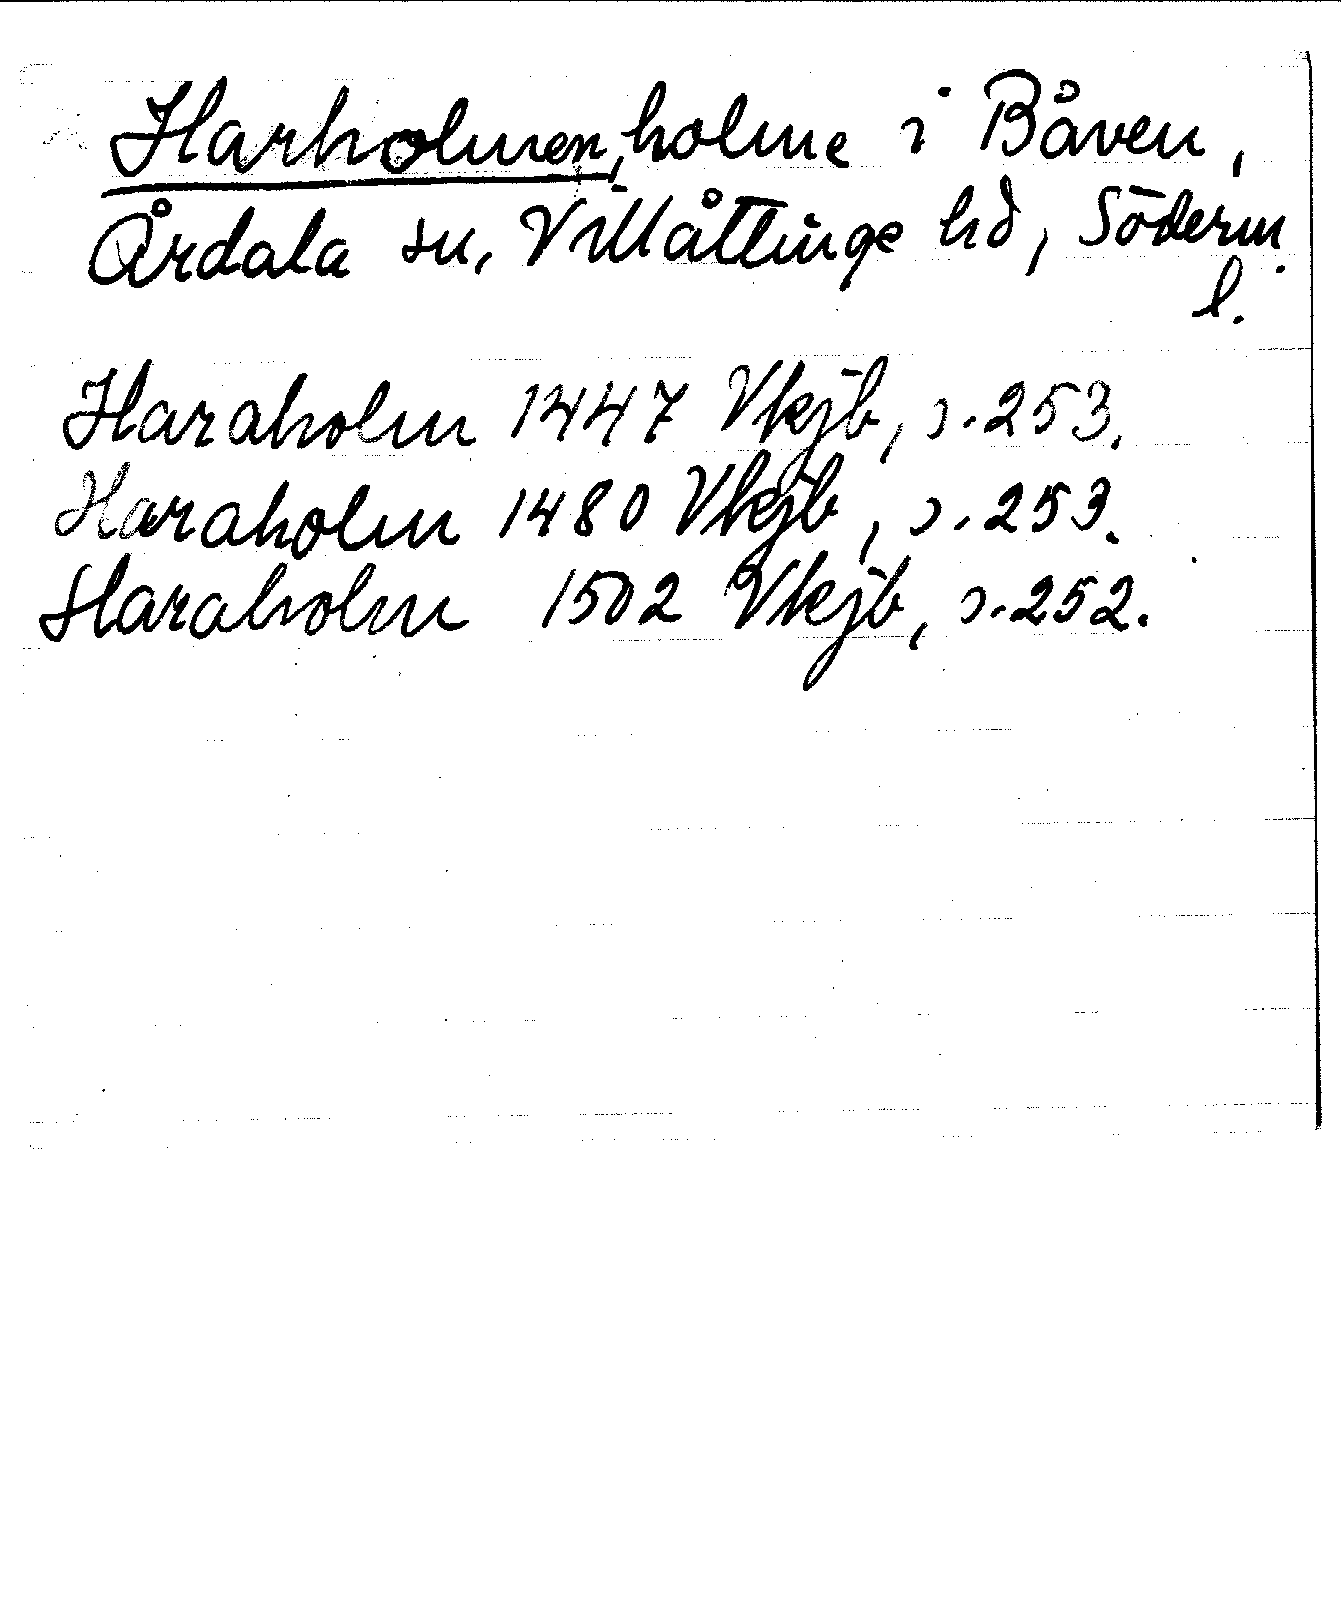 Harholmen, holme i Båven,
Årdala sn, Villåttinge hd, Söderm.
l.
Haraholm 1447 Vkjb, s. 253.
Haraholm 1480 Vkjb, s. 253.
Haraholm 1502 Vkjb, s. 252.